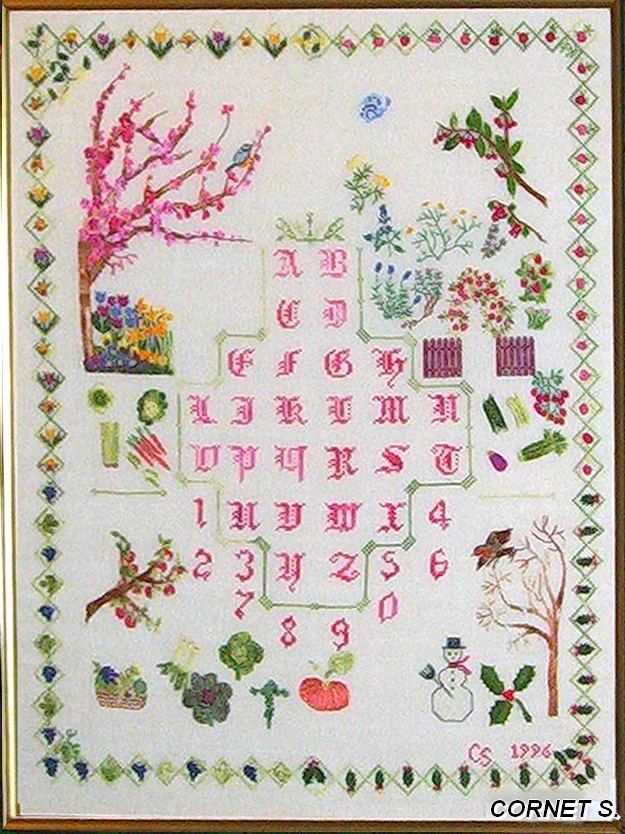 A B
C D
E F G H
I J K L M N
O P Q R S T
1 U V W X 4
2 3 Y Z 5 6
7 0
8 9
CS 1996
CORNET S.